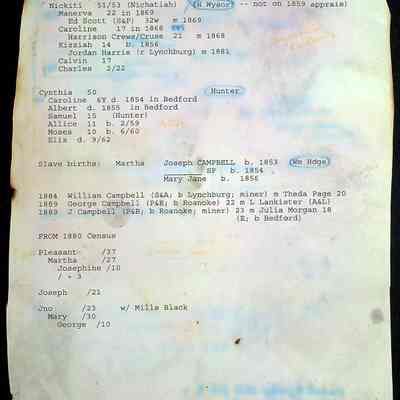 Nickiti 51/53 (Nichatiah) (H Wysor) -- not on 1859 appraise)
Manerva 22 in 1869
Ed Scott (S&P) 32w m 1869
Caroline 17 in 1868
Harrison Crews/Cruse 21 m 1868
Kizziah 14 b. 1856
Jordan Harris (r Lynchburg) m 1881
Calvin 17
Charles 2/22
Cynthia 50 Hunter
Caroline 6Y d. 1854 in Bedford
Albert d. 1855 in Bedford
Samuel 15 (Hunter)
Allice 11 b. 2/59
Moses 10 b. 6/60
Eliz d. 9/62
Slave births: Martha Joseph CAMPBELL b. 1853 Wm Hdge
SP b. 1854
Mary Jane b. 1856
1884 William Campbell (S&A; b Lynchburg; miner) m Theda Page 20
1889 George Campbell (P&B; b Roanoke) 22 m L Lankister (A&L)
1883 J Campbell (P&B; b Roanoke; miner) 23 m Julia Morgan 18
(E; b Bedford)
FROM 1880 Census
Pleasant /37
Martha /27
Josephine /10
/ + 3
Joseph /21
Jno /23 w/ Mills Black
Mary /30
George /10